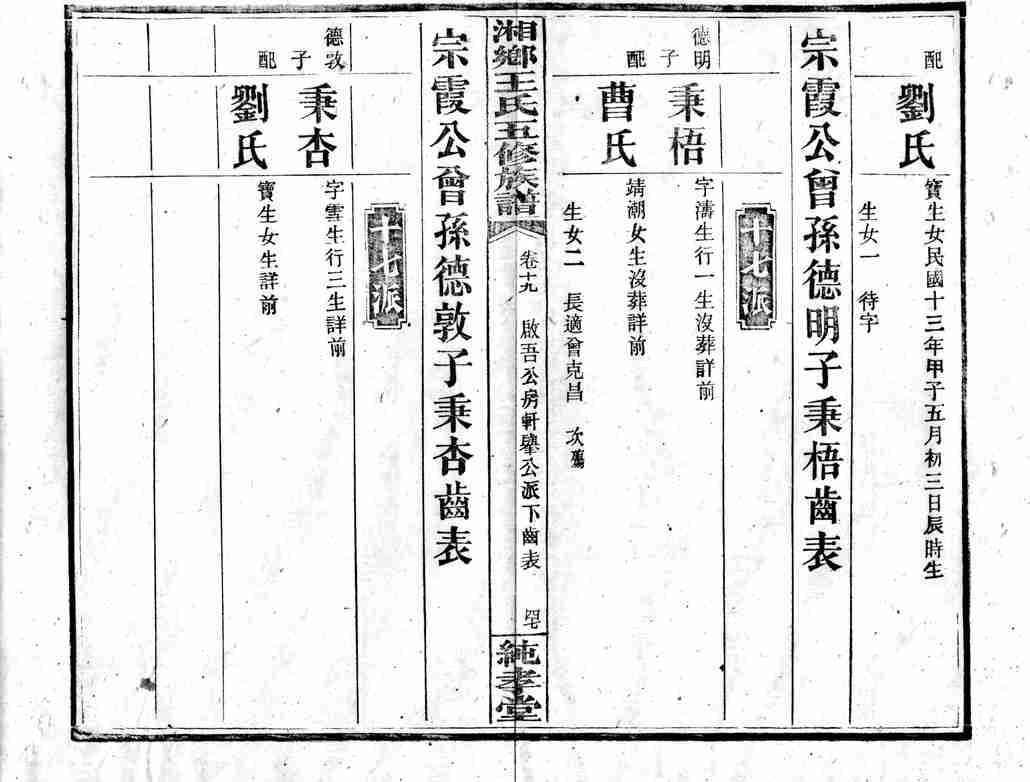 配
劉氏
寶生女民國十三年甲子五月初三日辰時生
生女一 待字
宗霞公曾孫德明子秉梧齒表
十七派
德明子
秉梧
字濤生行一生沒葬詳前
配
曹氏
靖潮女生沒葬詳前
生女二 長適曾克昌 次殤
湘鄉王氏五修族譜
卷十九
啟吾公房軒舉公派下齒表
純孝堂
宗霞公曾孫德敦子秉杏齒表
十七派
德敦子
秉杏
字雪生行三生詳前
配
劉氏
寶生女生詳前